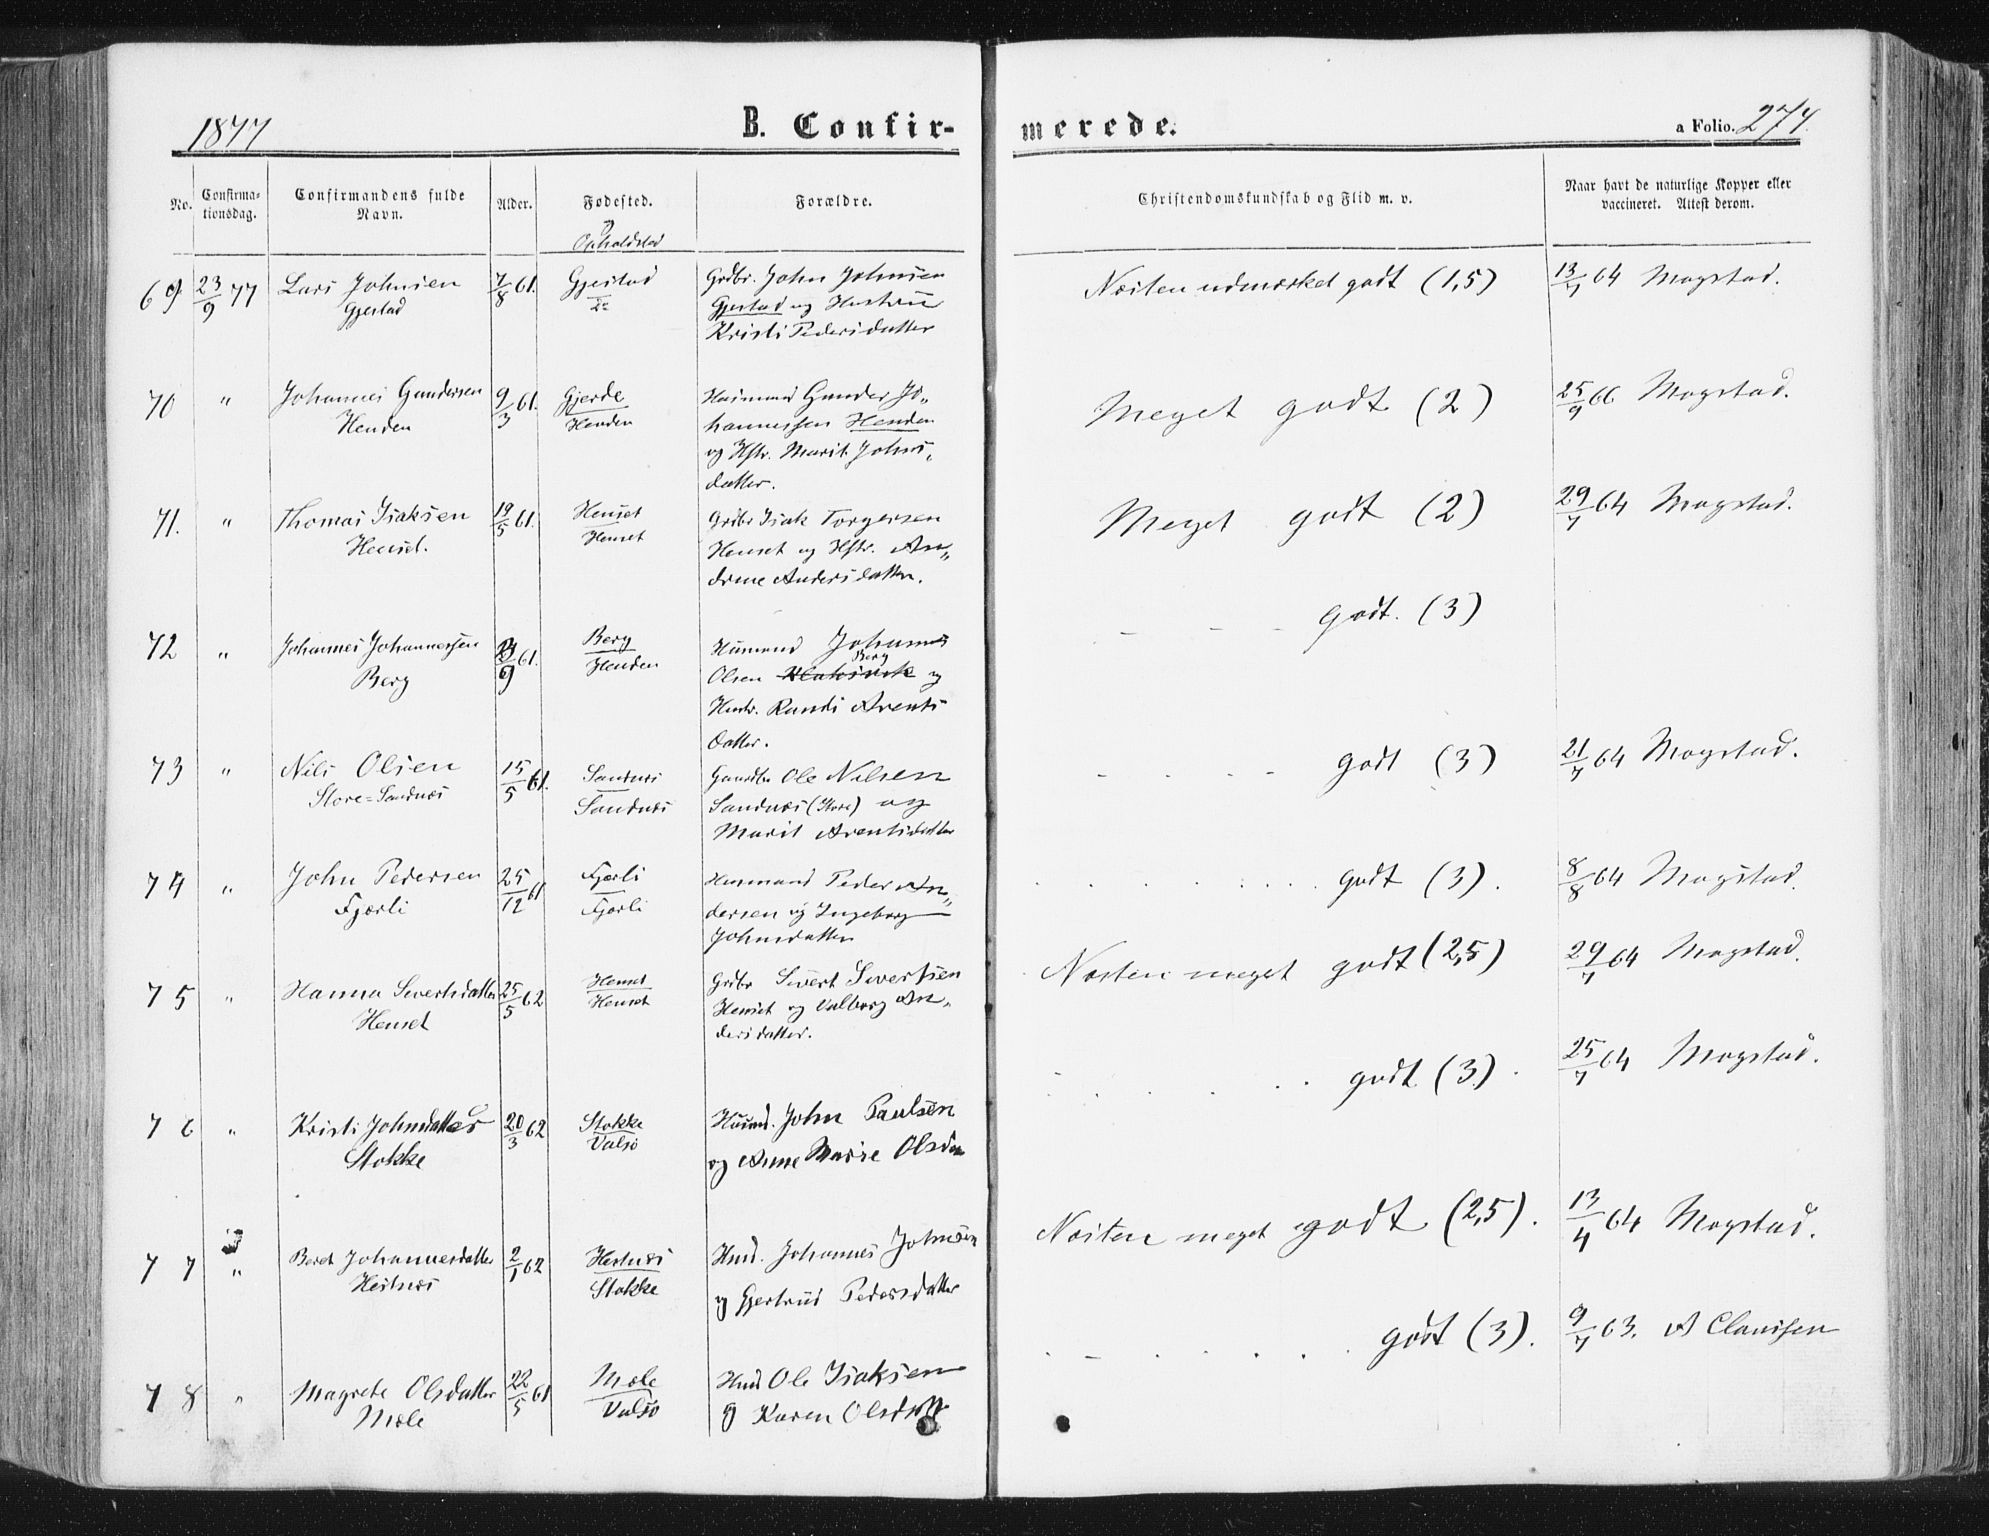 1877
B. Confir-
merede.
a Folio. 274.
No.
Confirma-
tionsdag.
Confirmandens fulde
Navn.
Alder.
Fødested.
og
Opholdsted
Forældre.
Christendomskundskab og Flid m. v.
Naar havt de naturlige Kopper eller
vaccineret. Attest derom.
69 23/9 77 Lars Johnsen 7/8 61. Gjestad Grdbr. John Johnsen Næsten udmærket godt (1,5) 13/7 64 Magstad.
Gjestad Gjestad og Hustru
Kristi Pedersdatter
70 " Johannes Gundersen 9/3 61. Gjerde Husmand Gunder Jo„ Meget godt (2) 25/9 66 Magstad.
Henden Henden hannessen Henden
og Hstr. Marit Johns„
datter.
71. " Thomas Isaksen 19/5 61. Henset Grdbr Isak Torgersen Meget godt (2) 29/7 64 Magstad.
Henset. Henset Henset og Hstr. An„
drine Andersdatter.
72 " Johannes Johannessen /9 61. Berg Husmand Johannes - - - godt. (3)
Berg Henden Olsen Berg og
Hustr. Randi Arents
datter.
73 " Nils Olsen 15/5 61. Sandnæs Gaardbr Ole Nilsen - - - - godt (3) 21/7 64 Magstad.
Store=Sandnæs Sandnæs Sandnæs (Store) og
Marit Arentsdatter
74 " John Pedersen 25/12 61 Fjærli Husmand Peder An„ . . . . godt (3). 8/8 64 Magstad.
Fjærli Fjærli dersen og Ingeborg
Johnsdatter
75 " Hanna Sivertsdatter 25/5 62 Henset Grdbr Sivert Sivertsen Næsten meget godt (2,5) 29/7 64 Magstad.
Henset Henset Henset og Valborg An„
dersdatter.
76 " Kristi Johnsdatter 20/3 62 Stokke Husmd. John Paulsen . . . . godt (3). 25/7 64 Magstad.
Stokke Valsø og Anne Marie Olsdtr
77 " Beret Johannesdatter 2/1 62 Hestnæs Husd. Johannes Johnsen Næsten meget godt (2,5). 13/4 64 Magstad.
Hestnæs Stokke og Gjertrud Pedersdatter
78 " Magrete Olsdatter 22/5 61 Mæle Husd Ole Isaksen . - . . . . godt (3). 9/7 63. A Claussen
Mæle Valsø og Karen Olsdatt